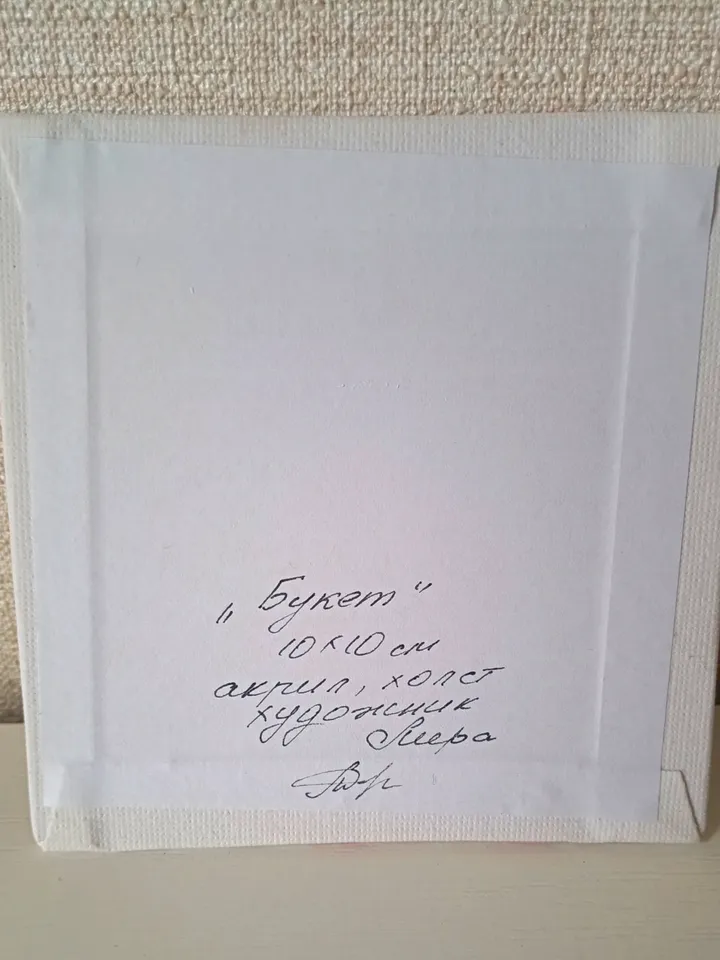 „Букет"
10×10 см
акрил, холст
художник
Мира